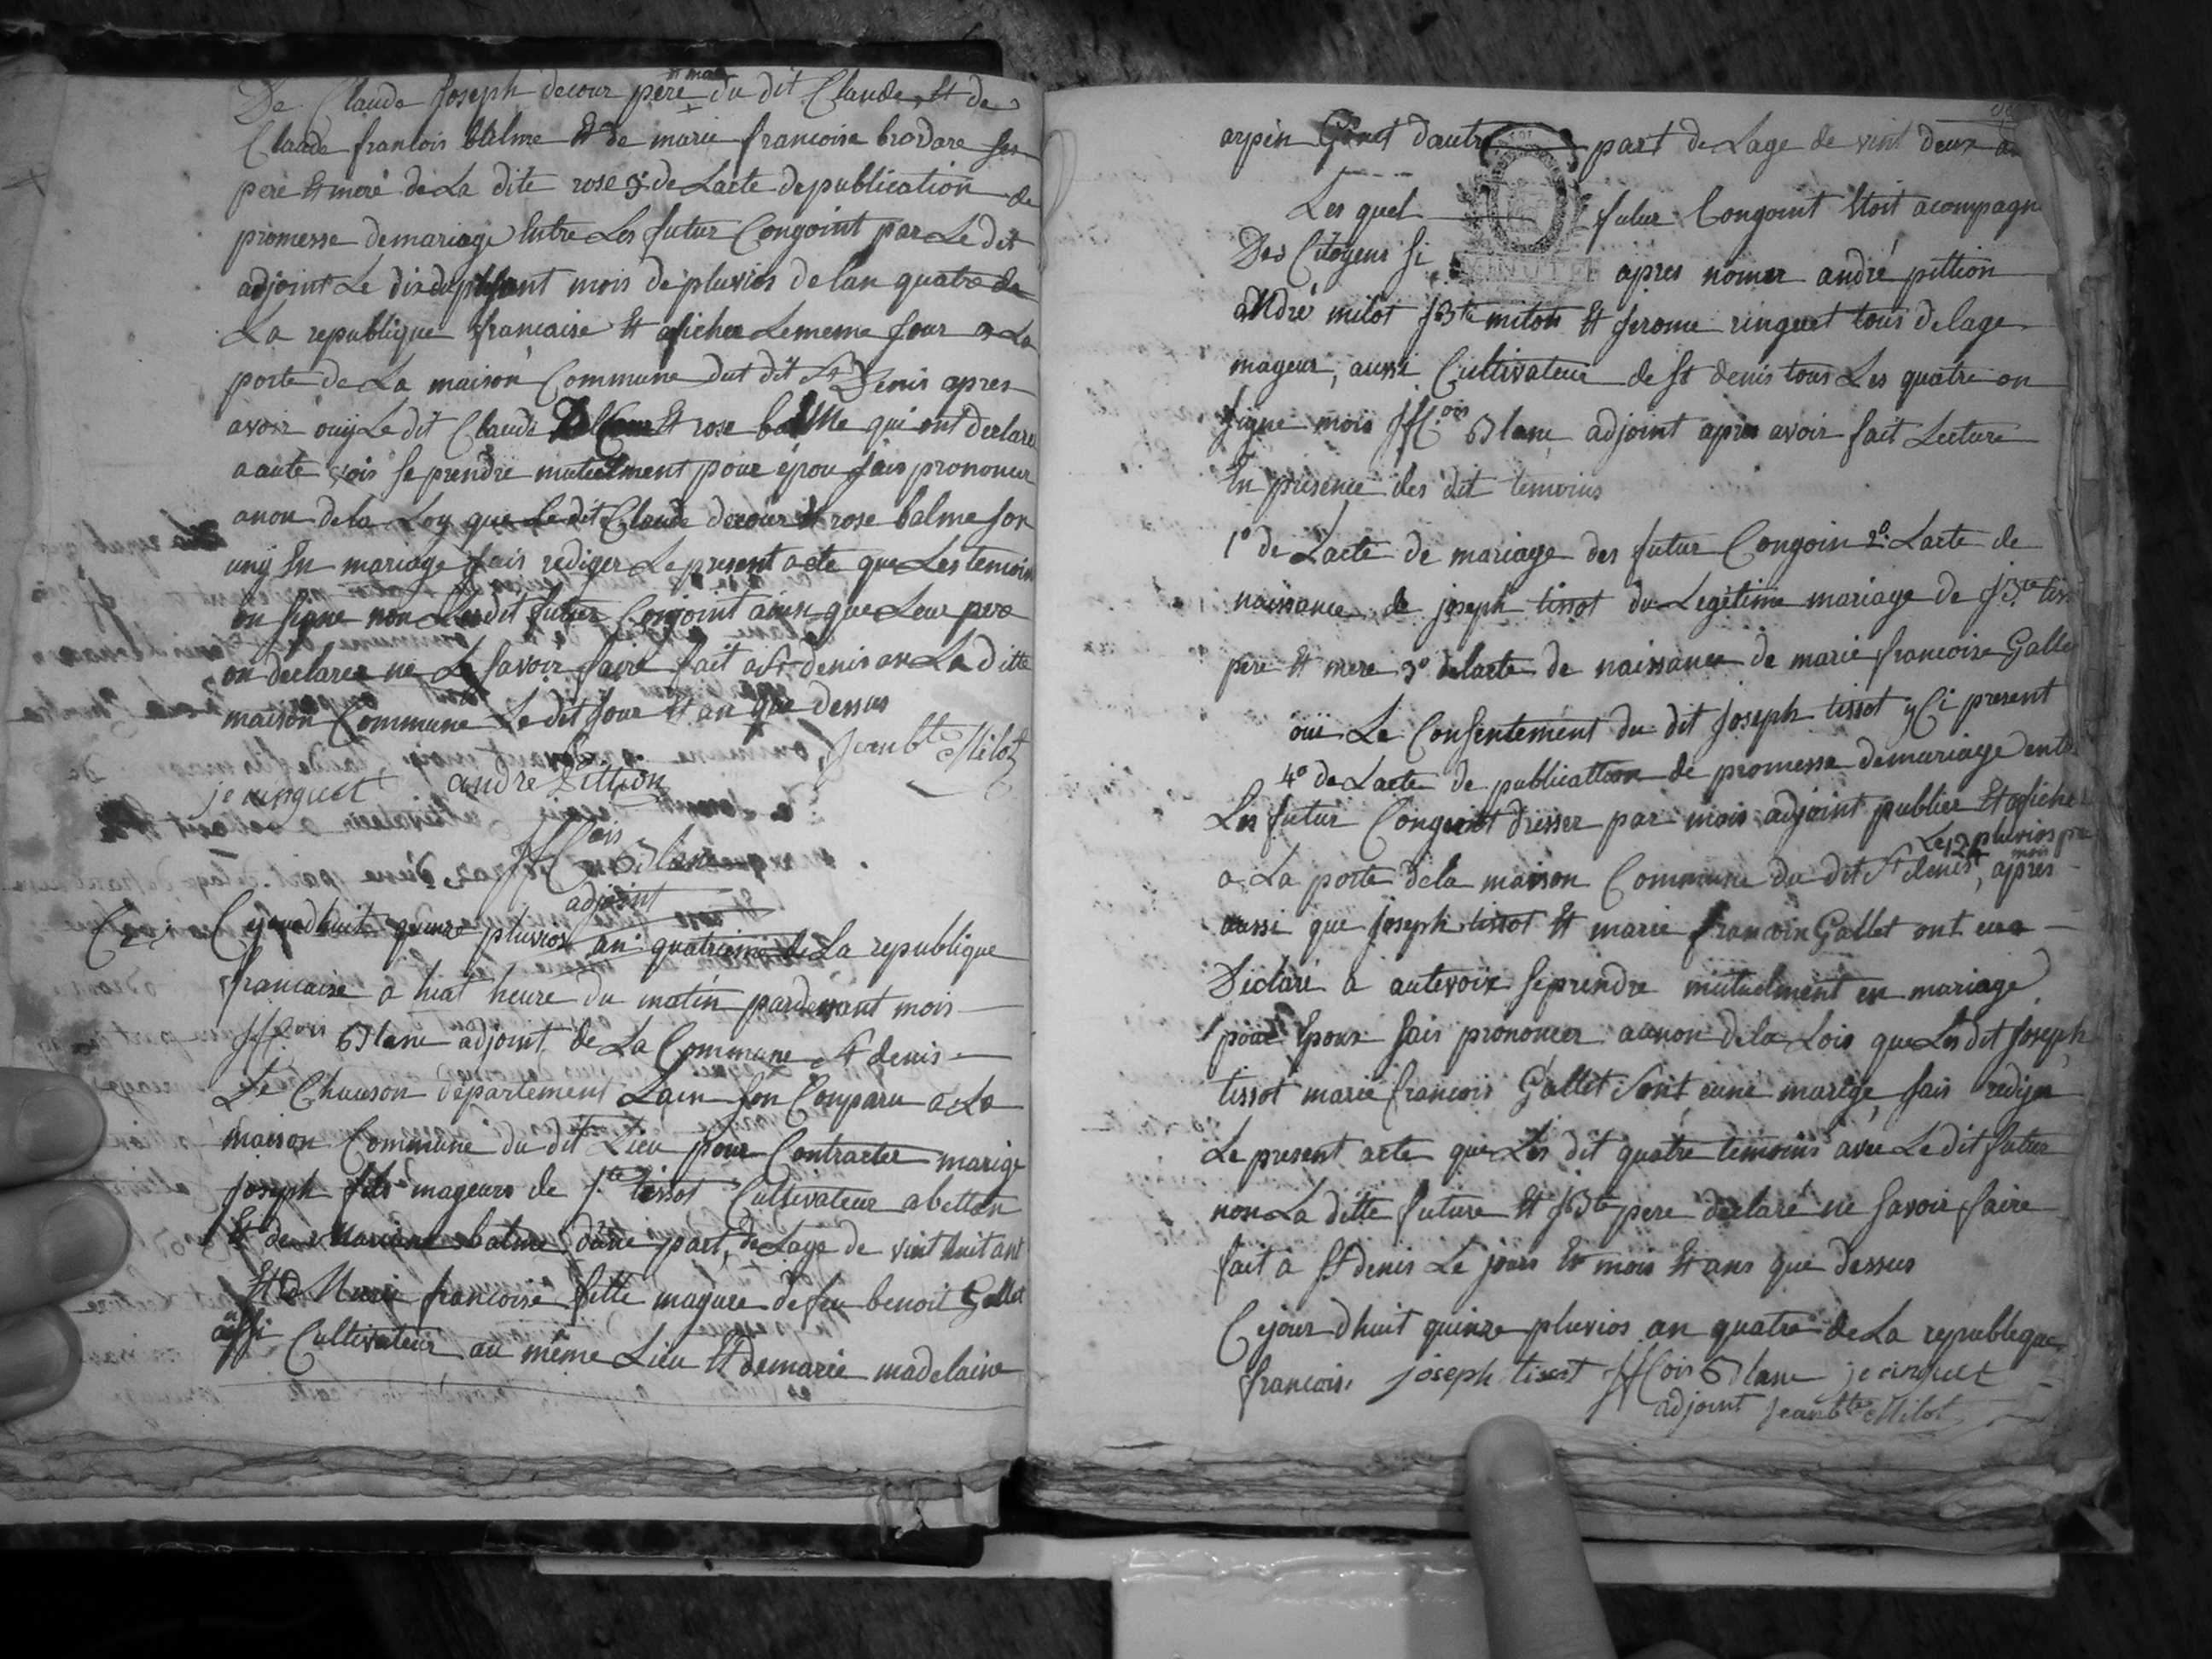 De Claude Joseph decour père et mere du dit Claude, Et de
Claude francois balme Et de marie francoise brodare ses
pere Et mere de La dite rose 3° de Lacte de publication de
promesse de mariage Entre Les futur Congoint par Le dit
adjoint Le dix du present mois de pluvios de lan quatre de
La republique francaise Et aficher Le meme Jour a La
porte de La maison Commune dut dit St Denis apres
avoir ouy Le dit Claude Decour Et rose balme qui ont declare
a aute vois se prendre mutuelment pour épou Jais prononcer
anon de la Loy que Le dit Claude decour Et rose balme son
uny En mariage Jais rediger Le present acte que Les temoin
on signe non Lesdit futur Conjoint ainsi que Leur pere
on declarer ne Le savoir faire fait a St denis an La ditte
maison Commune Le dit Jour Et an que dessus
je ringuet andre Pittion Jean bte Milot
JfCois Blanc
adjoint
Cejourdhuit quinze pluvios an quatrieme de La republique
francaise a huit heure du matin pardevant mois
JfCois Blanc adjoint de La Commune St denis
Le Chauson département Lain son Conparu a La
maison Commune du dit Lieu pour Contracter marige
Joseph fils mageurs de J.bte tissot Cultivateur a bettan
Et de Mariane balme dune part, de Lage de vint huit ant
Et de Marie francoise fille magure de feu benoit Gallet
aussi Cultivateur au même Lieu Et de marie madelaine
arpin Et dautre part de Lage de vint deux an
Les quel futur Congoint Etoit acompagn
Des Citoyens si apres nomer andré pittion
andré milot JBte miton Et Jerome ringuet tous de lage
mageur, aussi Cultivateur de St denis tous Les quatre on
signe mois JfC.ois Blanc adjoint apres avoir fait Lecture
En presence des dit temoins
1° de Lacte de mariage des futur Congoin 2° Lacte de
naissance de joseph tissot du Legitime mariage de JBte tiss
pere Et mere 3° de lacte de naissance de marie francoise Galle
oui Le Consentement du dit Joseph tissot y Ci present
4° de Lacte de publication de promesse de mariage ent
Les futur Congoint dresser par mois adjoint publier Et afiche
Le 12 pluvios pr
a La porte de la maison Commune du dit St denis, apres mois
aussi que Joseph tissot Et marie francoin Gallet ont eu
Déclaré a autevoix se prendre mutuelment en mariage
pour Epoux Jais prononcer aunon de la Lois que Les dit Joseph
tissot marie francois Gallet Sont euni marige, Jais redijer
Le present acte que Les dit quatre temoins avec Le dit futur
non La ditte future Et JBte pere déclaré ne savoir faire
fait a St denis Le jours Et mois Et ans que dessus
Cejour dhuit quinze pluvios an quatre de La republeque
francois. joseph tissot JfCois Blanc je ringuet
adjoint Jean bte Milot